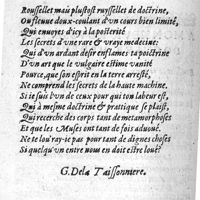 Rousselet mais plustost ruysselet de doctrine,
Ou fleuue doux-coulant d'un cours bien limité,
Qui enuoyes d'icy à la posterité
Les secrets d'une rare & vraye medecine:
Qui d'un ardant desir enflames ta poictrine
D'un art que le vulgaire estime vanité
Pource, que son esprit en la terre arresté,
Ne comprend les secrets de la haute machine.
Si ie suis l'un de ceux pour qui ton labeur est,
Qui à mesme doctrine & pratique se plaist,
Qui recerche des corps tant de metamorphoses
Et que les Muses ont tant de fois aduoüé.
Ne te louray-ie pas pour tant de dignes choses
Si quelqu'un entre nous en doit estre loüé?
G. De la Taissonniere.